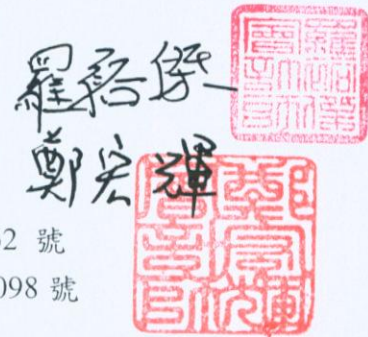 羅裕傑
鄭宏輝
2 號
098 號